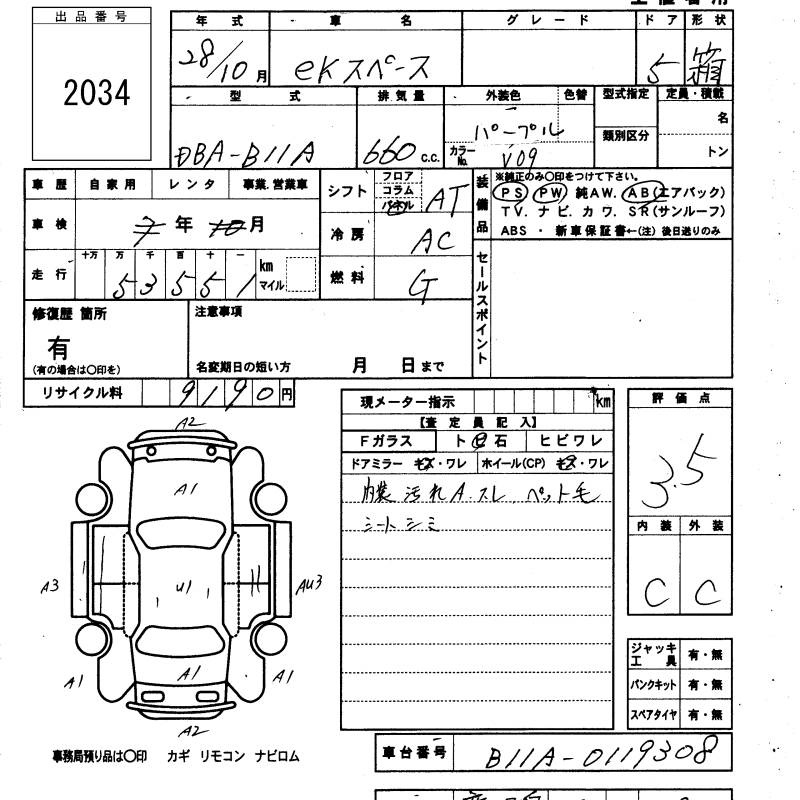 出品番号
2034
年式 車名 グレード ドア 形状
28/10月 eKスペース 5 箱
型式 排気量 外装色 色替 型式指定 定員・積載
DBA-B11A 660 c.c. パープル カラーNo. V09 類別区分 名 トン
車歴 自家用 レンタ 事業.営業車
車検 7年 10月
走行 十万 万 千 百 十 一 km マイル
53551
シフト フロア コラム パネル AT
冷房 AC
燃料 G
装備品 ※純正のみ○印をつけて下さい。
PS PW 純AW. AB(エアバック)
TV. ナビ. カワ. SR(サンルーフ)
ABS ・ 新車保証書←(注) 後日送りのみ
セールスポイント
修復歴 箇所
有
(有の場合は○印を)
注意事項
名変期日の短い方 月 日まで
リサイクル料 9190円
現メーター指示 km
【査定員記入】
Fガラス ト 石 ヒビワレ
ドアミラー キズ・ワレ ホイール(CP) キズ・ワレ
内装 汚れ A.スレ ペット毛
シートシミ
評価点
3.5
内装 外装
C C
A2
A1
A3 U1 AU3
A1 A1 A1
A2
ジャッキ工具 有・無
パンクキット 有・無
スペアタイヤ 有・無
事務局預り品は○印 カギ リモコン ナビロム
車台番号 B11A-0119308